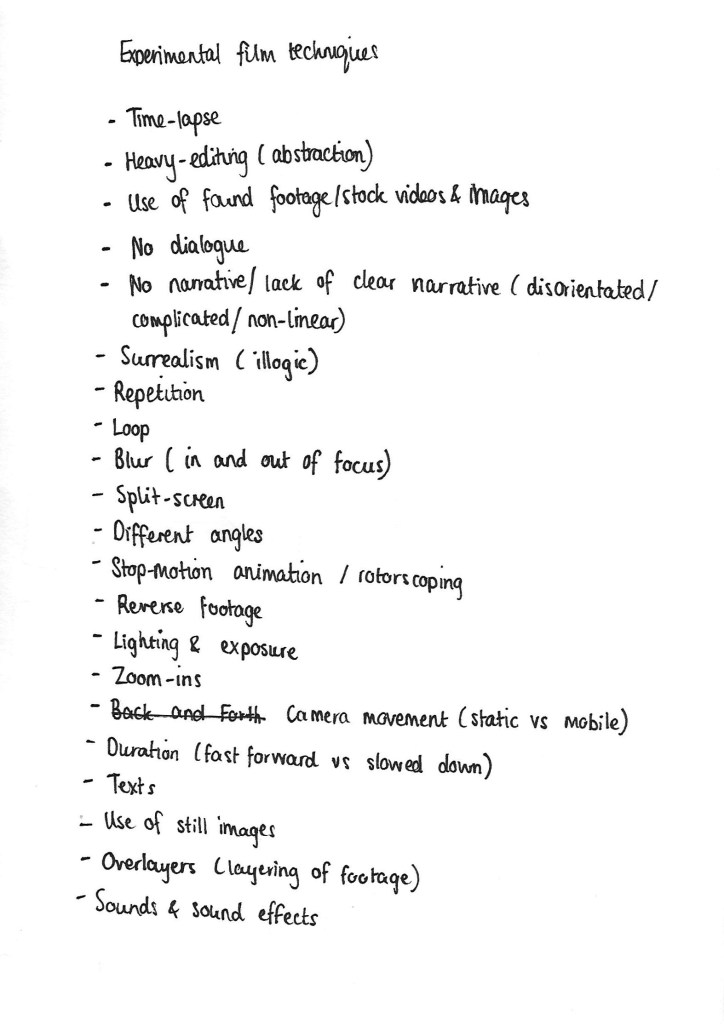 Experimental film techniques
- Time-lapse
- Heavy-editing (abstraction)
- Use of found footage/stock videos & images
- No dialogue
- No narrative/ lack of clear narrative (disorientated/
complicated/non-linear)
- Surrealism (illogic)
- Repetition
- Loop
- Blur (in and out of focus)
- Split-screen
- Different angles
- Stop-motion animation / rotorscoping
- Reverse footage
- Lighting & exposure
- Zoom-ins
- Back and Forth Camera movement (static vs mobile)
- Duration (fast forward vs slowed down)
- Texts
- Use of still images
- Overlayers (layering of footage)
- Sounds & sound effects